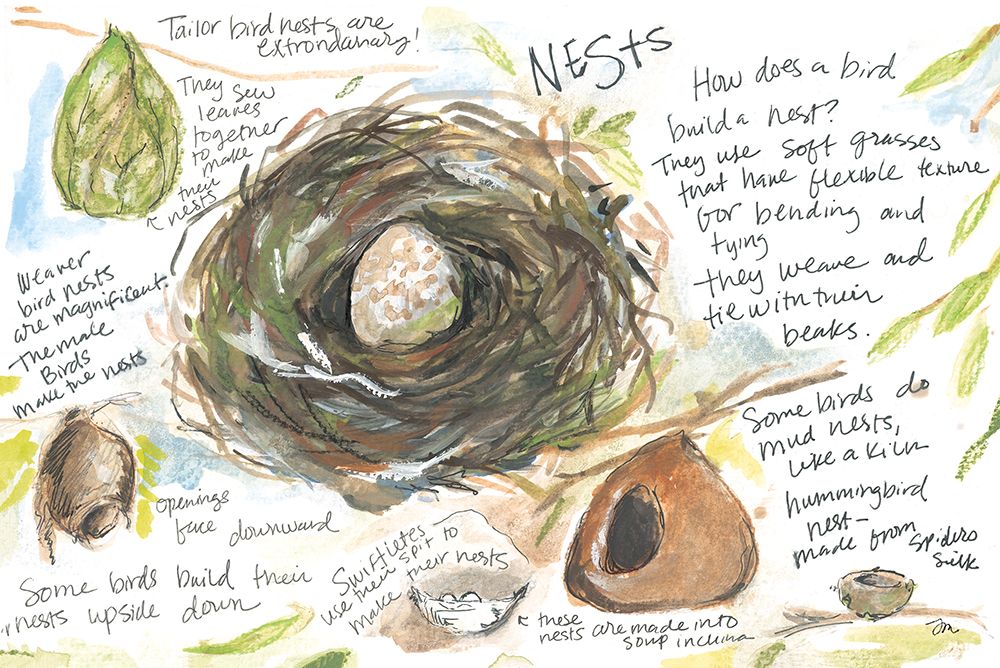 Tailor bird nests are
extrondanary!
They sew
leaves
together
to make
their
nests
NESTS
How does a bird
build a nest?
They use soft grasses
that have flexible texture
for bending and
tying
they weave and
tie with their
beaks.
Weaver
bird nests
are magnificent.
The male
Birds
make the nests
openings
face downward
Some birds build their
nests upside down
Swiftletes
use their spit to
make their nests
these
nests are made into
soup in china
Some birds do
mud nests,
like a kiln
hummingbird
nest—
made from spiders
silk